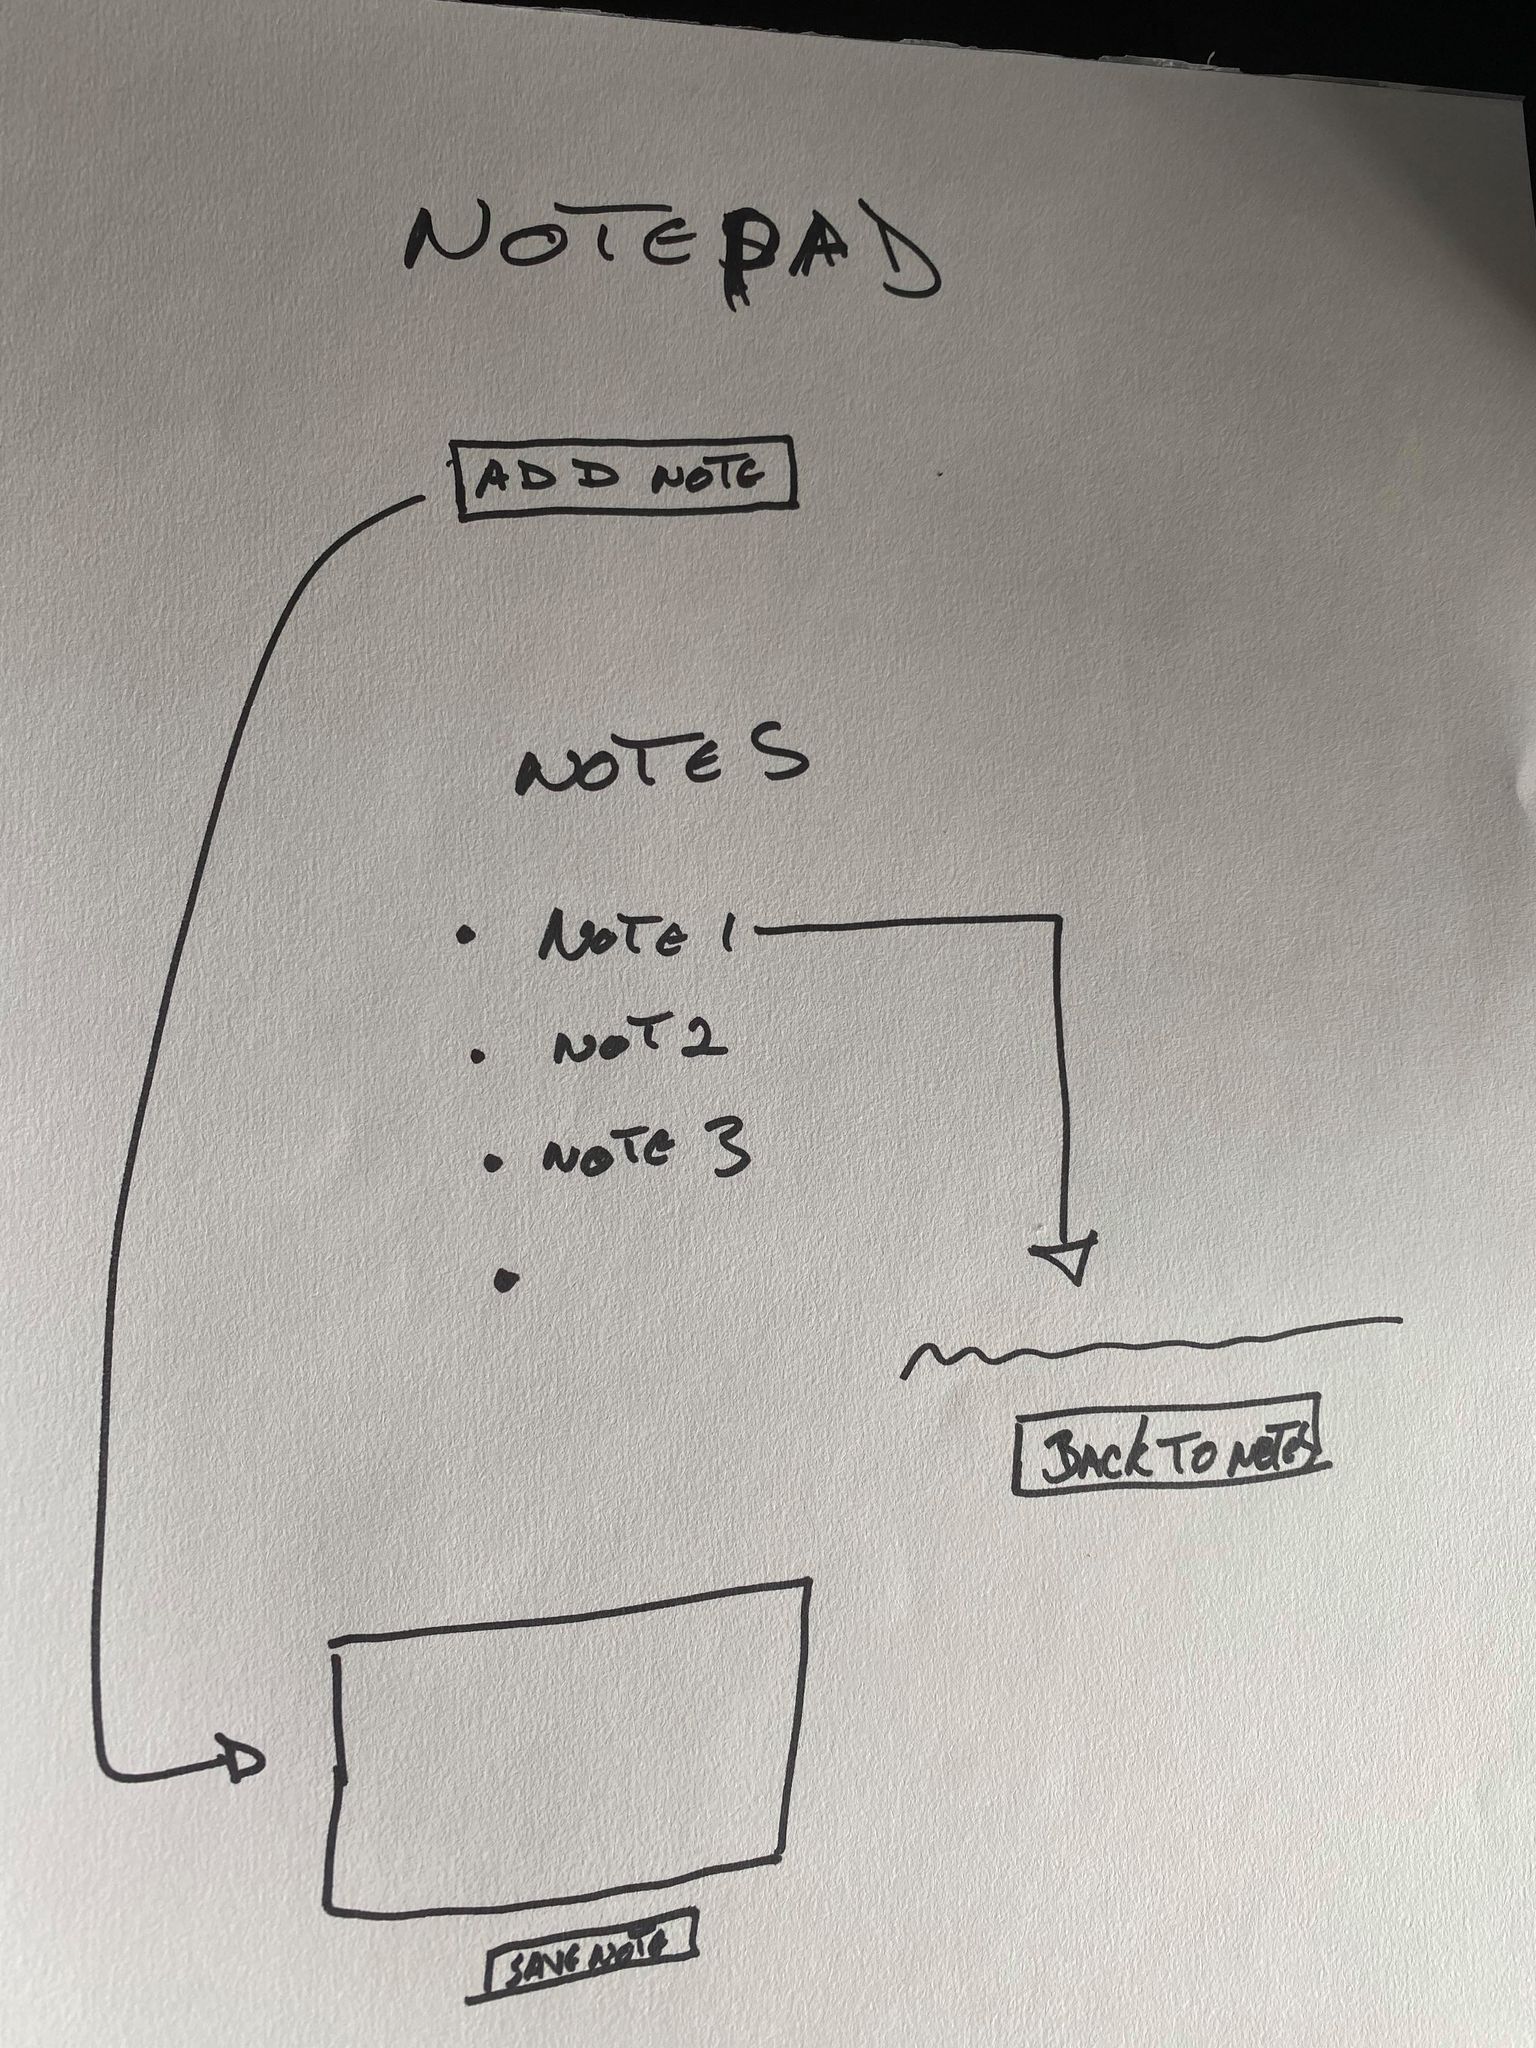 NOTEPAD
ADD NOTE
NOTES
• NOTE 1
• NOT 2
• NOTE 3
•
BACK TO NOTES
SAVE NOTE